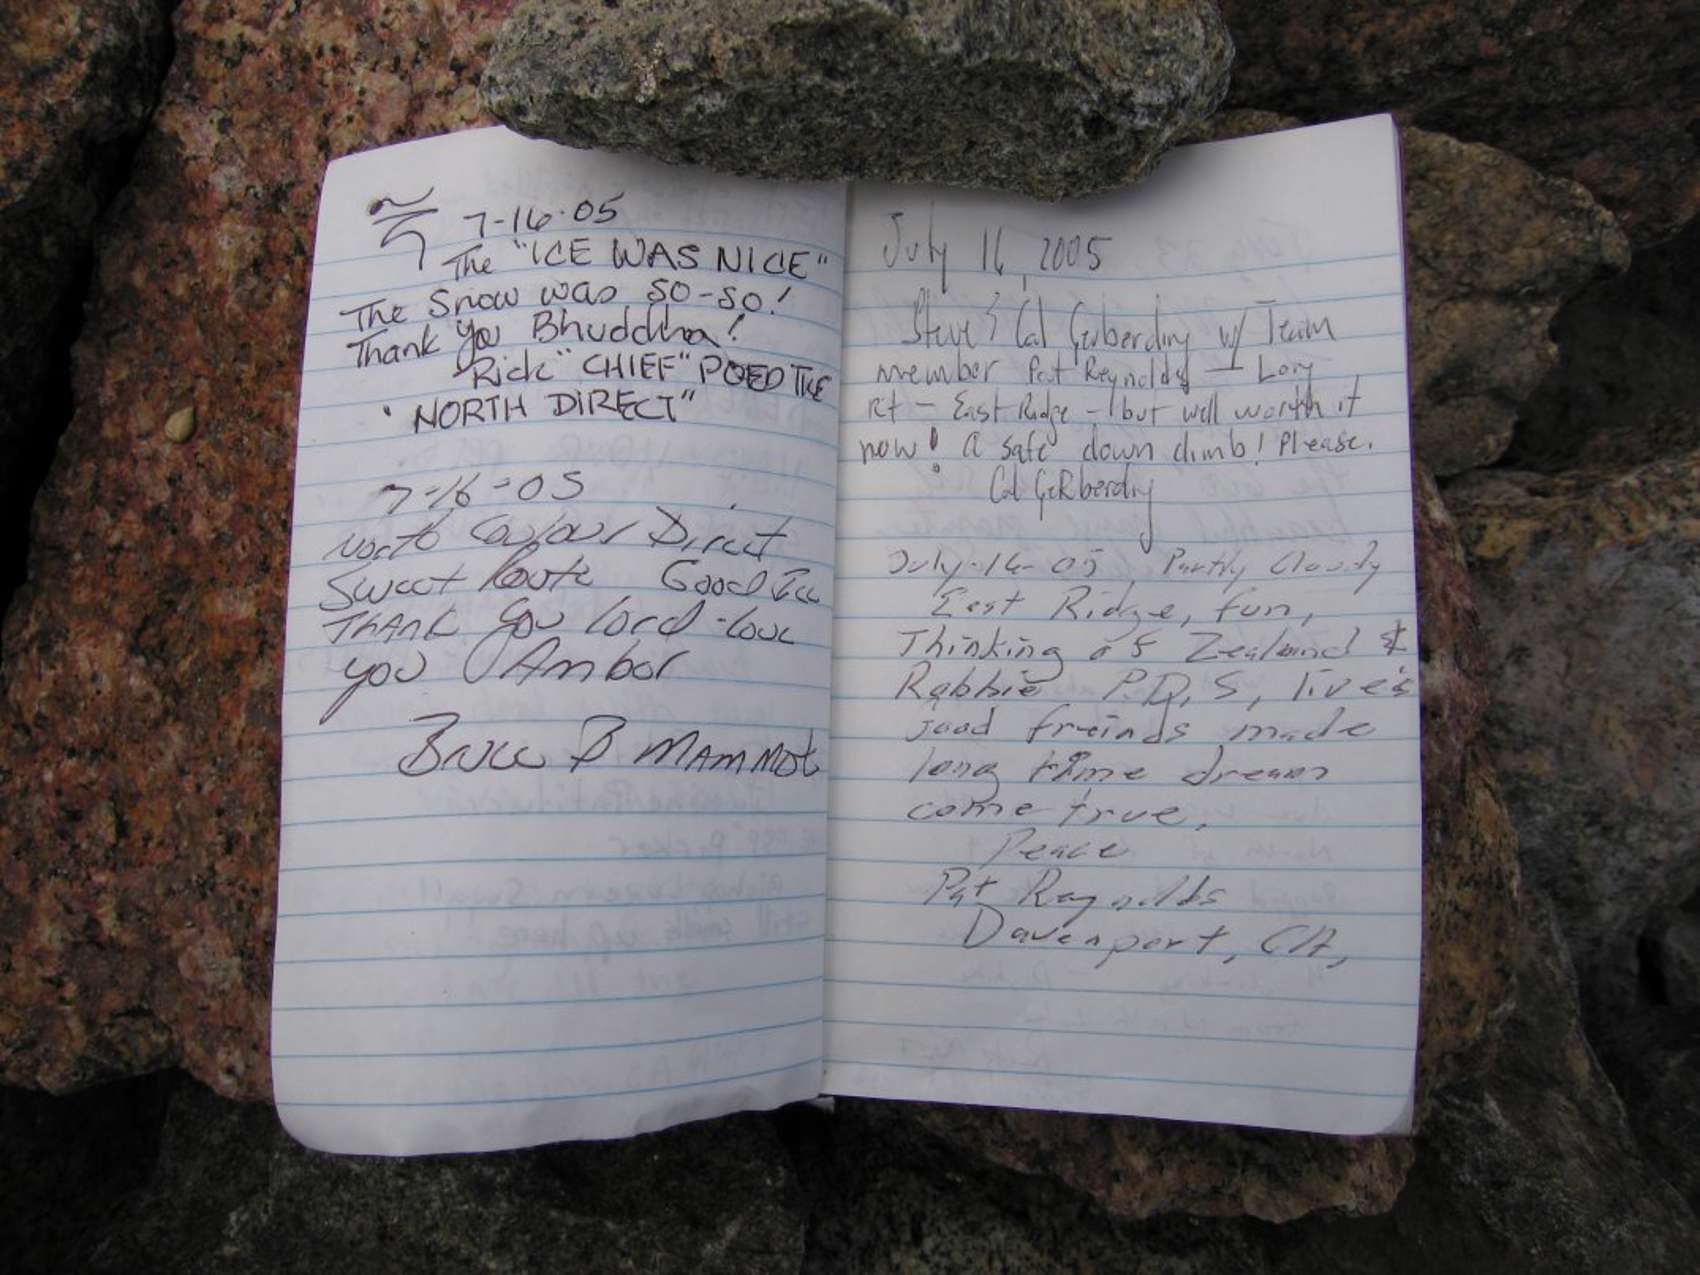 7-16-05
The "ICE WAS NICE"
The Snow was so-so!
Thank You Bhuddha!
Rick "CHIEF" POED THE
"NORTH DIRECT"
7-16-05
North Couloir Direct
Sweet Route Good Ice
THANK you lord - love
you Ambor
Bruce B MAMMOth
July 16, 2005
Steve & Cal Gerberding w/ Team
member Pat Reynolds – Long
rt – East Ridge – but well worth it
now! A safe down climb! Please.
Cal GeRberding
July-16-05, Partly Cloudy
East Ridge, fun,
Thinking of Zealand &
Robbie P.D.S, live's
good freinds made
long time dream
come true.
Peace
Pat Reynolds
Davenport, CA,